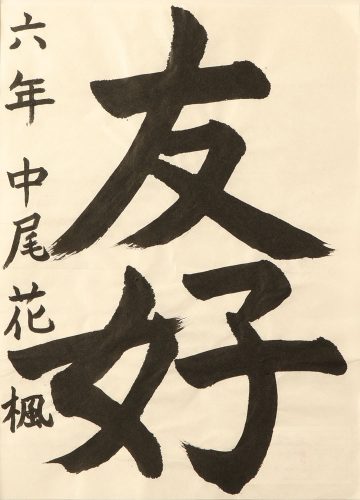 友好
六年 中尾花楓